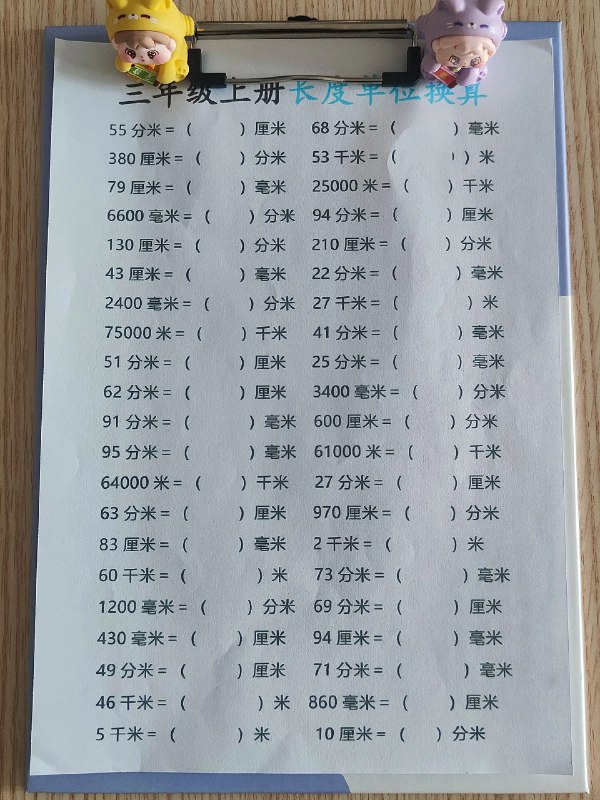 三年级上册长度单位换算
55 分米 =（　　）厘米　68 分米 =（　　）毫米
380 厘米 =（　　）分米　53 千米 =（　　）米
79 厘米 =（　　）毫米　25000 米 =（　　）千米
6600 毫米 =（　　）分米　94 分米 =（　　）厘米
130 厘米 =（　　）分米　210 厘米 =（　　）分米
43 厘米 =（　　）毫米　22 分米 =（　　）毫米
2400 毫米 =（　　）分米　27 千米 =（　　）米
75000 米 =（　　）千米　41 分米 =（　　）毫米
51 分米 =（　　）厘米　25 分米 =（　　）毫米
62 分米 =（　　）厘米　3400 毫米 =（　　）分米
91 分米 =（　　）毫米　600 厘米 =（　　）分米
95 分米 =（　　）毫米　61000 米 =（　　）千米
64000 米 =（　　）千米　27 分米 =（　　）厘米
63 分米 =（　　）厘米　970 厘米 =（　　）分米
83 厘米 =（　　）毫米　2 千米 =（　　）米
60 千米 =（　　）米　73 分米 =（　　）毫米
1200 毫米 =（　　）分米　69 分米 =（　　）厘米
430 毫米 =（　　）厘米　94 厘米 =（　　）毫米
49 分米 =（　　）厘米　71 分米 =（　　）毫米
46 千米 =（　　）米　860 毫米 =（　　）厘米
5 千米 =（　　）米　10 厘米 =（　　）分米